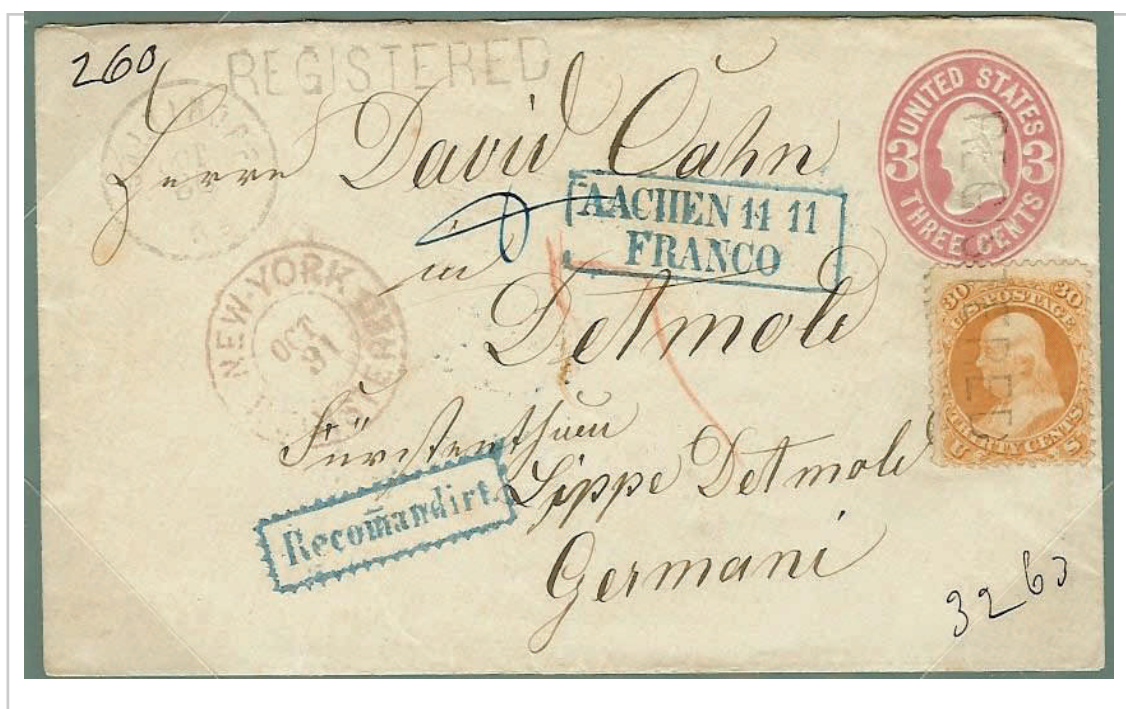 260
REGISTERED
UNITED STATES
3 3
THREE CENTS
Herrn David Cahn
AACHEN 11 11
FRANCO
in
NEW-YORK
OCT
31
Detmold
30 30
U.S. POSTAGE
THIRTY CENTS
U S
REGISTERED
Fürstenthum
Lippe Detmold
Recom̄andirt
Germani
3263